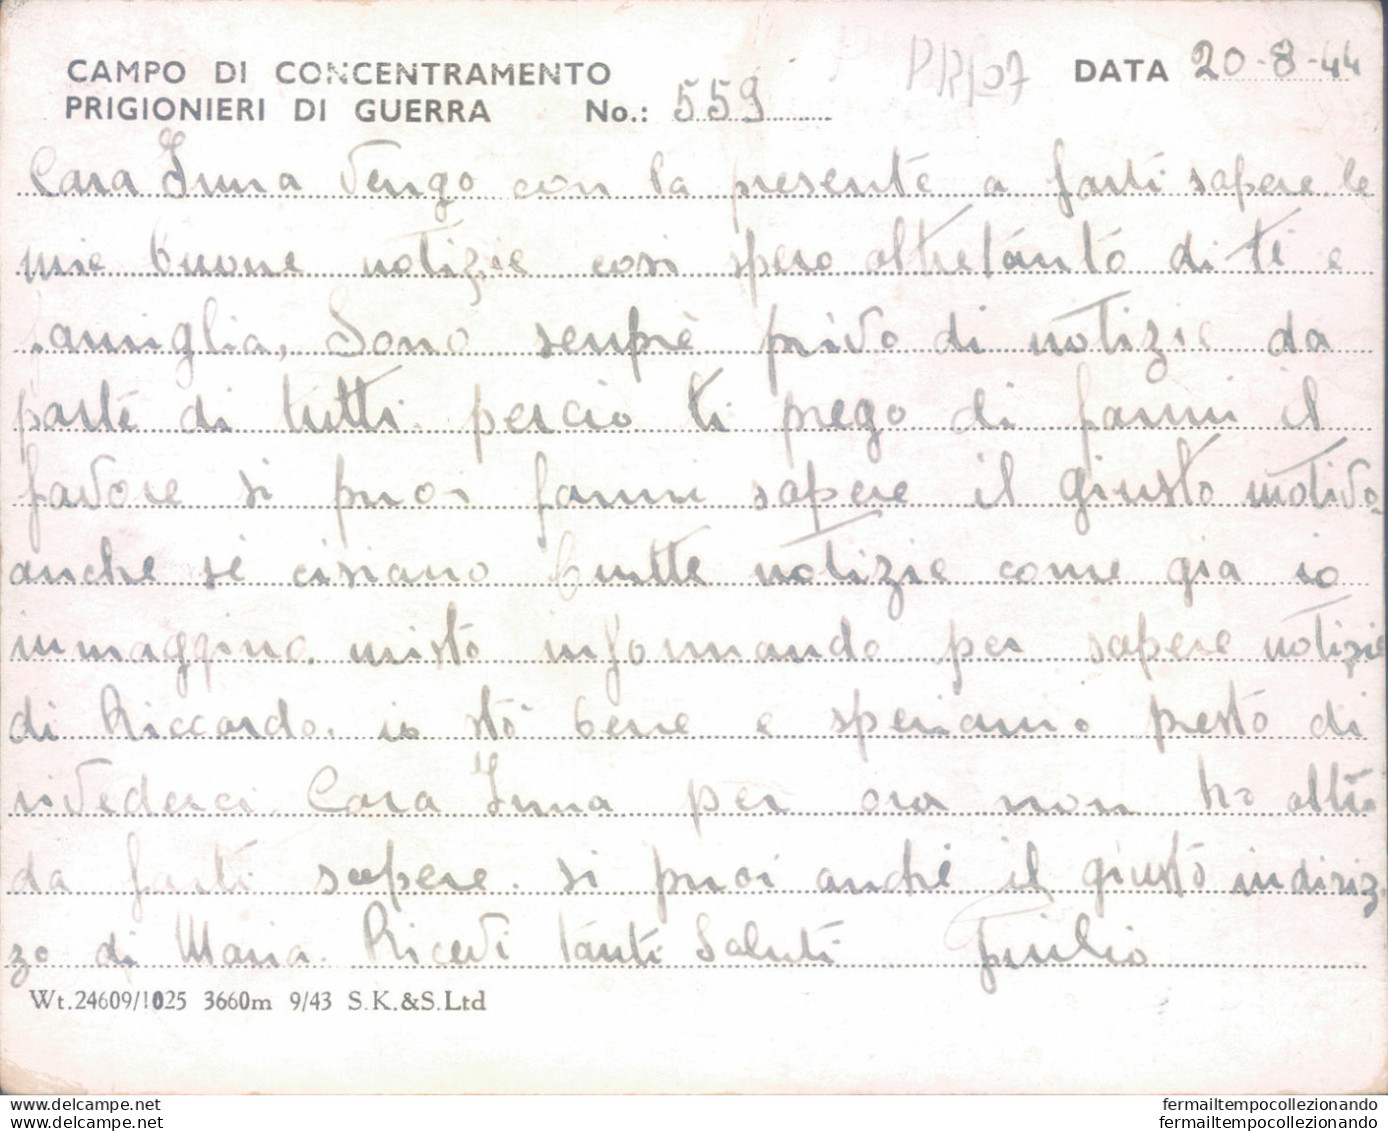 CAMPO DI CONCENTRAMENTO
PRIGIONIERI DI GUERRA No.: 559
PR107
DATA 20-8-44
Cara Irma Vengo con la presente a farti sapere le
mie buone notizie cosi spero altretanto di te e
famiglia, Sono senpre privo di notizie da
parte di tutti. perciò ti prego di farmi il
favore si puoi farmi sapere il giusto motivo.
anche se cisiano brutte notizie come gia io
immaggino. misto informando per sapere notizie
di Riccardo. io stò bene e speriamo presto di
rivederci. Cara Irma per ora non ho altro
da farti sapere. si puoi anche il giusto indiriz
zo di Maria. Ricevi tanti Saluti Giulio
Wt.24609/1025 3660m 9/43 S.K.&S.Ltd
www.delcampe.net fermailtempocollezionando
www.delcampe.net fermailtempocollezionando